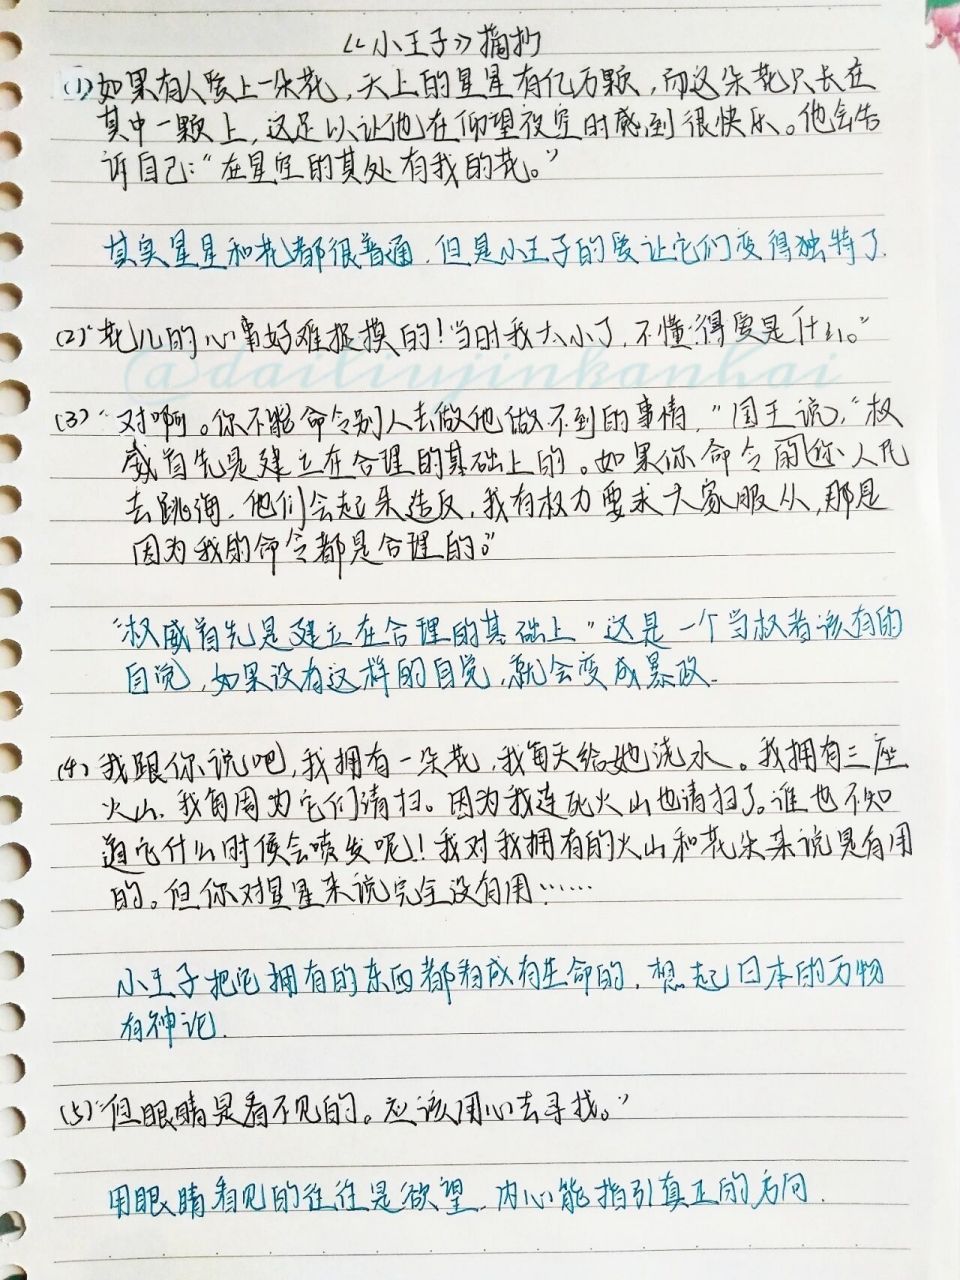 《小王子》摘抄
(1) 如果有人爱上一朵花，天上的星星有亿万颗，而这朵花只长在
其中一颗上，这足以让他在仰望夜空时感到很快乐。他会告
诉自己：“在星空的某处有我的花。”
其实星星和花都很普通，但是小王子的爱让它们变得独特了.
(2)“花儿的心事好难捉摸的！当时我太小了，不懂得爱是什么。”
@dailiujinkanhai
(3)“对啊。你不能命令别人去做他做不到的事情，”国王说，“权
威首先是建立在合理的基础上的。如果你命令你人民
去跳海，他们会起来造反，我有权力要求大家服从，那是
因为我的命令都是合理的。”
“权威首先是建立在合理的基础上”这是一个当权者该有的
自觉，如果没有这样的自觉，就会变成暴政.
(4) 我跟你说吧，我拥有一朵花，我每天给她浇水。我拥有三座
火山，我每周为它们清扫。因为我连死火山也清扫了。谁也不知
道它什么时候会喷发呢！我对我拥有的火山和花朵来说是有用
的。但你对星星来说完全没有用……
小王子把它拥有的东西都看成有生命的，想起日本的万物
有神论.
(5)“但眼睛是看不见的。应该用心去寻找。”
用眼睛看见的往往是欲望，内心能指引真正的方向.